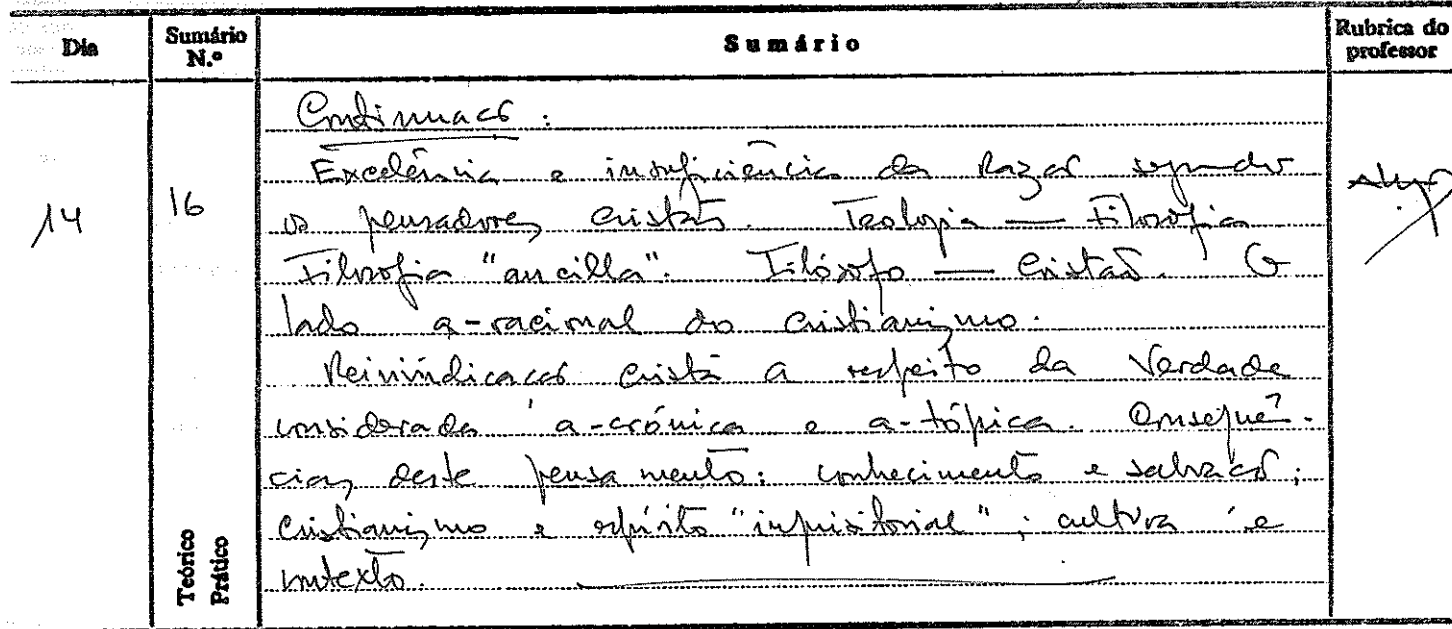 Dia Sumário N.º Sumário Rubrica do professor
Continuação:
Excelência e insuficiência da Razão segundo
14 16 os pensadores cristãos. Teologia — Filosofia
Filosofia "ancilla". Filósofo — Cristão. O
lado a-racional do cristianismo.
Reinvindicação cristã a respeito da Verdade
considerada a-crónica e a-tópica. Consequên-
cias deste pensamento: conhecimento e salvação;
cristianismo e espírito "inquisitorial"; cultura e
contexto.
Teórico
Prático